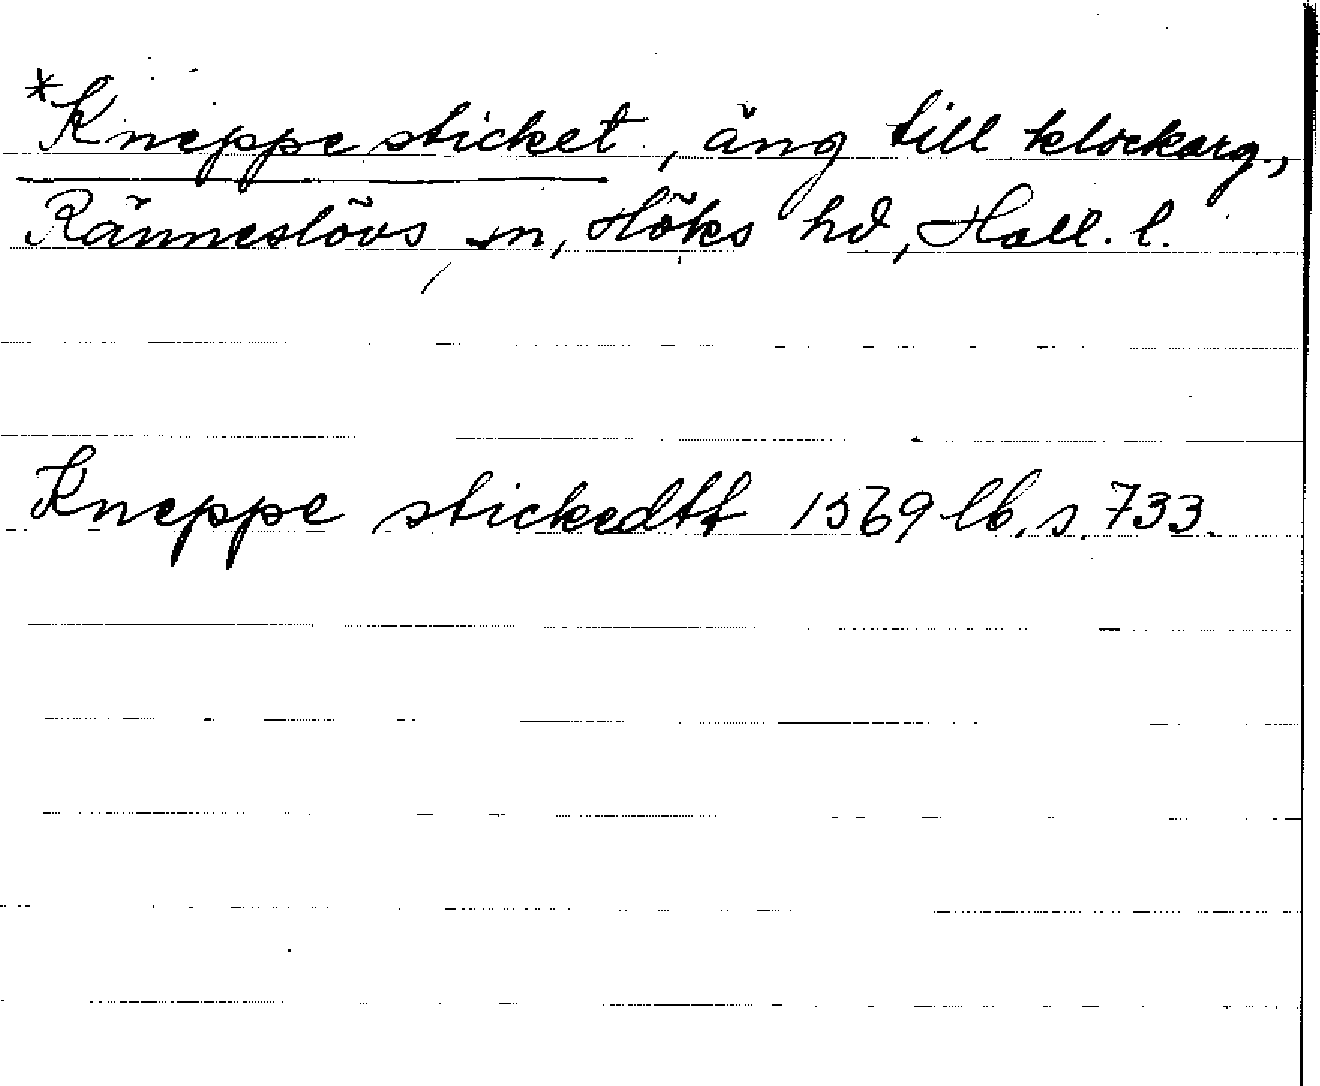 *Kneppesticket, äng till klockarg.,
Ränneslövs sn, Höks hd, Hall. l.
Kneppe stickedtt 1569 lb. s. 733.